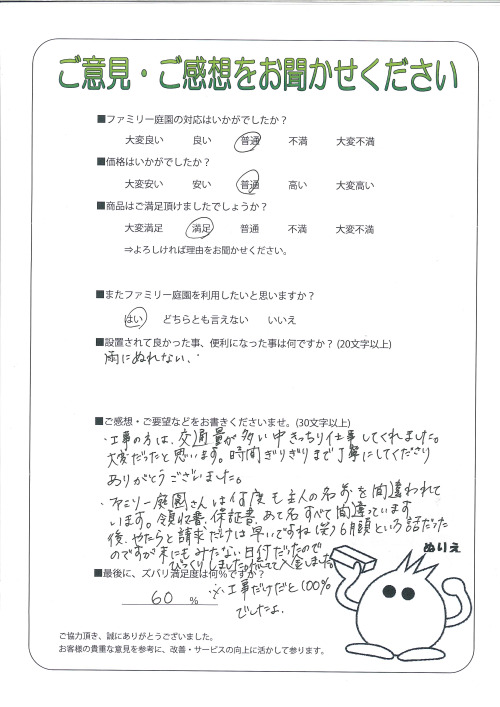 ご意見・ご感想をお聞かせください
■ファミリー庭園の対応はいかがでしたか？
大変良い 良い 普通 不満 大変不満
■価格はいかがでしたか？
大変安い 安い 普通 高い 大変高い
■商品はご満足頂けましたでしょうか？
大変満足 満足 普通 不満 大変不満
⇒よろしければ理由をお聞かせください。
■またファミリー庭園を利用したいと思いますか？
はい どちらとも言えない いいえ
■設置されて良かった事、便利になった事は何ですか？(20文字以上)
雨にぬれない、
■ご感想・ご要望などをお書きくださいませ。(30文字以上)
・工事の方は、交通量が多い中きっちり仕事してくれました。
大変だったと思います。時間ぎりぎりまで丁寧にしてくださり
ありがとうございました。
・ファミリー庭園さんは何度も主人の名前を間違われて
います。領収書、保証書、あて名すべて間違っています
後、やたらと請求だけは早いですね(笑)6月頭という話だった
のですが末にもみたない日付だったので
びっくりしました。がんばって入金しました。
■最後に、ズバリ満足度は何％ですか？
60 ％
※工事だけだと100%
でしたよ。
ぬりえ
ご協力頂き、誠にありがとうございました。
お客様の貴重な意見を参考に、改善・サービスの向上に活かして参ります。